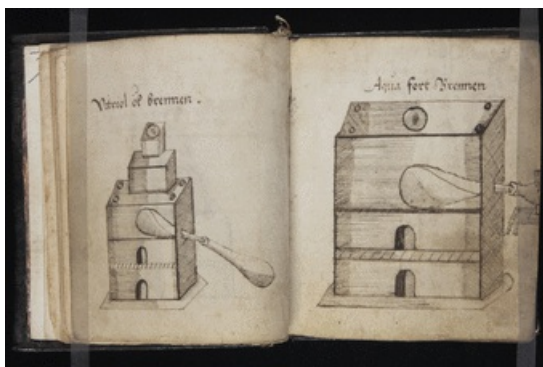 Vitriol öl brennen.
Aqua fort Brennen